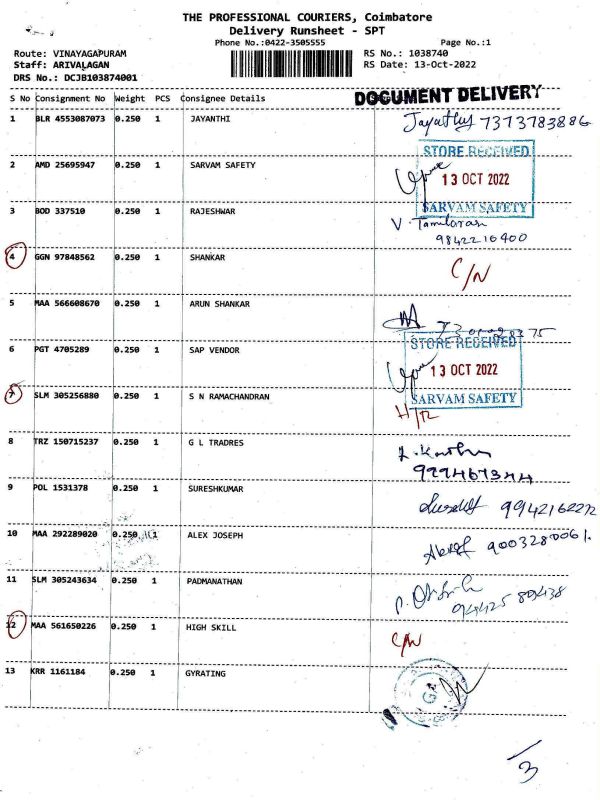 THE PROFESSIONAL COURIERS, Coimbatore
Delivery Runsheet - SPT
Phone No.:0422-3505555 Page No.:1
Route: VINAYAGAPURAM RS No.: 1038740
Staff: ARIVALAGAN RS Date: 13-Oct-2022
DRS No.: DCJB103874001
S No Consignment No Weight PCS Consignee Details DOCUMENT DELIVERY
1 BLR 4553087073 0.250 1 JAYANTHI 7373783886
STORE RECEIVED
2 AMD 25695947 0.250 1 SARVAM SAFETY 13 OCT 2022
SARVAM SAFETY
3 BOD 337510 0.250 1 RAJESHWAR V. Tamilarasan
9842210400
4 GGN 97848562 0.250 1 SHANKAR C/N
5 MAA 566608670 0.250 1 ARUN SHANKAR
STORE RECEIVED
6 PGT 4705289 0.250 1 SAP VENDOR 13 OCT 2022
7 SLM 305256880 0.250 1 S N RAMACHANDRAN SARVAM SAFETY
8 TRZ 150715237 0.250 1 G L TRADRES
9 POL 1531378 0.250 1 SURESHKUMAR
10 MAA 292289020 0.250 1 ALEX JOSEPH 9003280061.
11 SLM 305243634 0.250 1 PADMANATHAN
9442589438
12 MAA 561650226 0.250 1 HIGH SKILL C/N
13 KRR 1161184 0.250 1 GYRATING
3